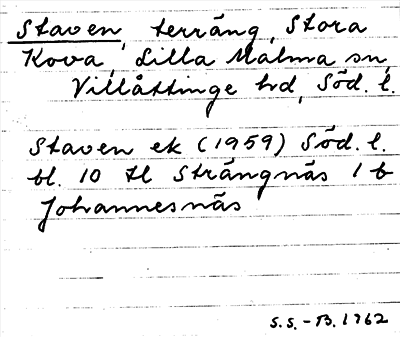 Staven, terräng, Stora
Kova, Lilla Malma sn,
Villåttinge hd, Söd. l.
Staven ek (1959) Söd. l.
bl. 10 tl Strängnäs 1 b
Johannesnäs
S.S. - B. 1962